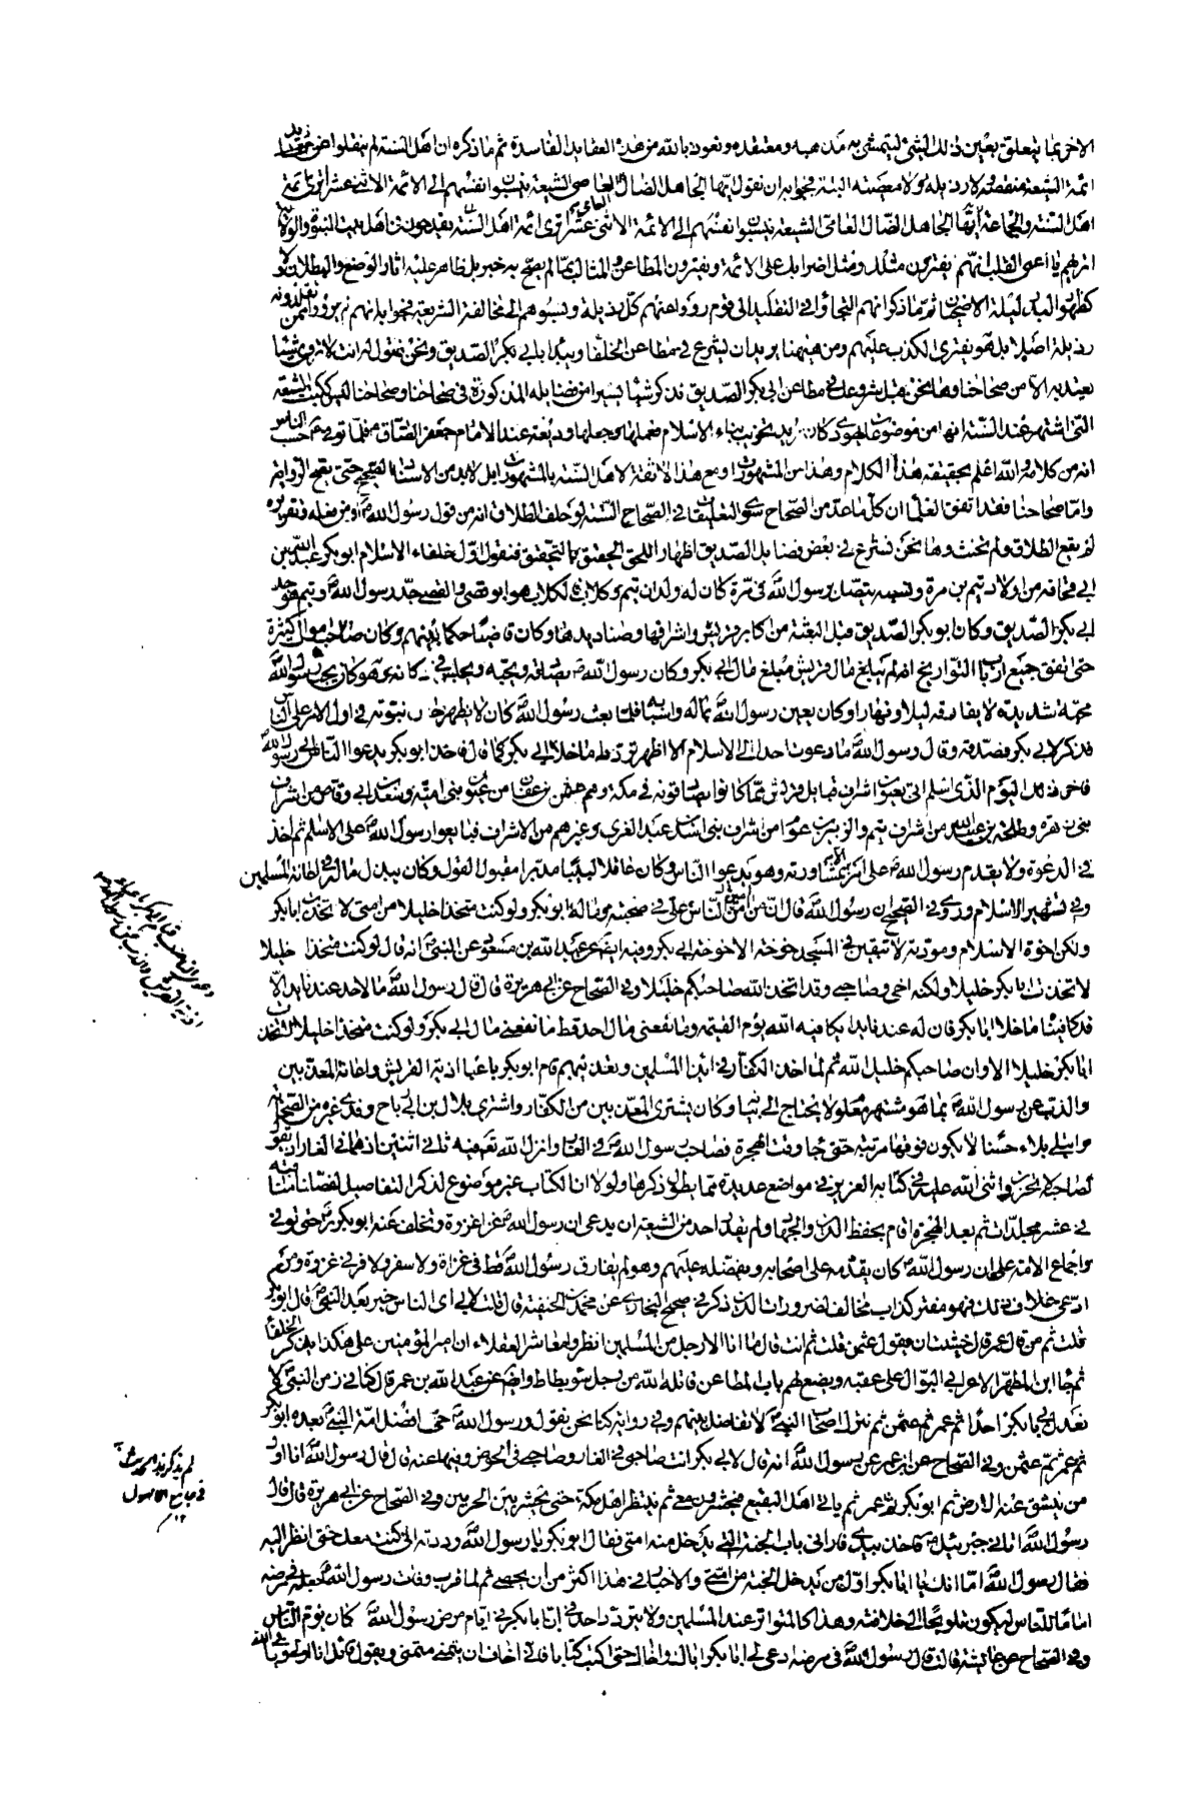 الاخر بما يتعلق بعين ذلك الشئ ليتمشى به مذهبه ومعتقده ونعوذ بالله من هذه العقايد الفاسدة ثم ما ذكره ان اهل السنة لم ينقلوا عن
ائمة الشيعة منقصة ولا رذيلة ولا معصية البتة فجوابه ان نقول ايها الجاهل الضال العامي الشيعة ينسبون انفسهم الى الائمة الاثنى عشر
اهل السنة والجماعة ايها الجاهل الضال العامي الشيعة ينسبون انفسهم الى الائمة الاثنى عشر اترى ائمة اهل السنة يقدحون في اهل بيت النبوة والولاية
اتريهم يا اعمى القلب انهم يفترون مثلك ومثل اضرابك على الائمة ويفترون المطاعن والمثالب مما لم يصح به خبر بل ظاهر عليه اثار الوضع والبطلان
كظهور البدر ليلة الاضحيان ثم ما ذكر انهم التجأوا في التقليد الى قوم رووا عنهم كل رذيلة ونسبوهم الى مخالفة الشريعة فجوابه انهم لم يرووا ممن يقلدونه
رذيلة اصلا بل هو يفترى الكذب عليهم ومن ههنا يريد ان يشرع في مطاعن الخلفاء ويبدا بابي بكر الصديق ونحن نقول له انت لا تروي شيئا
يعتد به الا من صحاحنا وها نحن قبل شروعك في مطاعن ابي بكر الصديق نذكر شيئا يسيرا من فضايله المذكورة في صحاحنا وصحاحنا ليس ككتب الشيعة
التي اشتهر عند السنة انها من موضوعات يهودي كان يريد تخريب بناء الاسلام فعملها وجعلها وديعة عند الامام جعفر الصادق فلما توفي حسب الناس
انه من كلامه والله اعلم بحقيقة هذا الكلام وهذا من المشهورات ومع هذا لا ثقة لاهل السنة بالمشهورات بل لابد من الاسناد الصحيح حتى يصح الرواية
واما صحاحنا فقد اتفق العلماء ان كل ما عد من الصحاح سوى التعليقات في الصحاح الستة لو حلف الطلاق انه من قول رسول الله او من فعله وتقريره
لم يقع الطلاق ولم يحنث وها نحن نشرع في بعض فضايل الصديق اظهارا للحق الحقيق بالتحقيق فنقول اول خلفاء الاسلام ابو بكر عبد الله بن
ابي قحافة من اولاد تيم بن مرة ونسبه يتصل برسول الله في مرة كان له ولدان تيم وكلاب الكلاب هو ابو قصي والقصي جد رسول الله وتيم هو جد
ابي بكر الصديق وكان ابو بكر الصديق قبل البعثة من اكابر قريش واشرافها وصناديدها وكان قاضيا حكما بينهم وكان صاحب اموال كثيرة
حتى اتفق جميع ارباب التواريخ انه لم يبلغ مال قريش مبلغ مال ابي بكر وكان رسول الله يصادقه ويحبه ويجلس في دكانه وهو كان يحب رسول الله
محبة شديدة لا يفارقه ليلا ونهارا وكان يعين رسول الله بماله واسبابه فلما بعث رسول الله كان لا يظهر نبوته في اول الامر على
فذكر لابي بكر فصدقه وقال رسول الله ما دعوت احدا الى الاسلام الا اظهر تردد ما خلا ابي بكر كما قال فاخذ ابو بكر يدعوا الناس الى رسول الله
فاخر ذلك اليوم الذي اسلم اتى بعيون اشراف قبايل قريش مما كانوا يصادقونه في مكة وهم عثمن بن عفان من عيون بني امية وسعد بن ابي وقاص من اشراف
بني زهرة وطلحة بن عبيد الله من اشراف تيم والزبير بن عوام من اشراف بني اسد بن عبد العزى وغيرهم من الاشراف فبايعوا رسول الله على الاسلام ثم اخذ
في الدعوة ولا يقدم رسول الله على امر الا بمشاورته وهو يدعوا الناس وكان عاقلا لبيبا مدبرا مقبول القول وكان يبذل ماله في اعانة المسلمين
وفي تشهير الاسلام وروي في الصحيح ان رسول الله قال ان من امن الناس علي في صحبته وماله ابو بكر ولو كنت متخذا خليلا من امتي لاتخذت ابا بكر
ولكن اخوة الاسلام ومودته لا تبقين في المسجد خوخة الا خوخة ابي بكر وفيه ايضا عن عبد الله بن مسعود عن النبي انه قال لو كنت متخذا خليلا
لاتخذت ابا بكر خليلا ولكنه اخي وصاحبي وقد اتخذ الله صاحبكم خليلا وفي الصحاح عن ابي هريرة قال قال رسول الله ما لاحد عندنا يد الا
قد كافيناه ما خلا ابا بكر فان له عندنا يدا يكافيه الله يوم القيمة وما نفعني مال احد قط ما نفعني مال ابي بكر ولو كنت متخذا خليلا لاتخذت
ابا بكر خليلا الا وان صاحبكم خليل الله ثم لما اخذ الكفار في ايذاء المسلمين وتعذيبهم قام ابو بكر باعباء اذية القريش واعانة المعذبين
والذب عن رسول الله بما هو مشتهر معلوم لا يحتاج الى بيانها وكان يشترى المعذبين من الكفار واشترى بلال بن ابي رباح وفدى غيره من الصحابة
وابتلي بلاء حسنا لا يكون فوقها مرتبة حتى جاء وقت الهجرة فصاحب رسول الله في الغار وانزل الله تعالى فيه ثاني اثنين اذ هما في الغار اذ يقول
لصاحبه لا تحزن واثنى الله عليه في كتابه العزيز في مواضع عديدة مما يطول ذكرها ولولا ان الكتاب غير موضوع لذكر التفاصيل لفصلنا مناقبه
في عشر مجلدات ثم بعد الهجرة اقام بحفظ الدين والجهاد ولم يقدر احد من الشيعة ان يدعي ان رسول الله غزا غزوة وتخلف عنه ابو بكر حتى توفي
واجماع الامة على ان رسول الله كان يقدمه على اصحابه ويفضله عليهم وهو لم يفارق رسول الله قط في غزاة ولا سفر ولا فر في غزوة ومن
ادعى خلاف ذلك فهو مفتر كذاب مخالف لضرورات الدين ذكر في صحيح البخاري عن محمد بن الحنفية قال قلت لابي اي الناس خير بعد النبي قال ابو بكر
قلت ثم من قال عمر قال خشيت ان يقول عثمن قلت ثم انت قال ما انا الا رجل من المسلمين انظروا معاشر العقلاء ان امير المؤمنين علي هكذا يذكر الخلفاء
ثم جاء ابن المطهر الاعرابي البوال على عقبه ويضع لهم باب المطاعن قاتله الله من رجل سوء بطاط وايضا عن عبد الله بن عمر قال كنا في زمن النبي لا
نعدل بابي بكر احدا ثم عمر ثم عثمن ثم نترك اصحاب النبي لا نفاضل بينهم وفي رواية كنا نحن نقول ورسول الله حي افضل امة النبي بعده ابو بكر
ثم عمر ثم عثمن وفي الصحاح عن ابن عمر عن رسول الله انه قال لابي بكر انت صاحبي في الغار وصاحبي في الحوض وفيها عنه قال قال رسول الله انا اول
من ينشق عنه الارض ثم ابو بكر ثم عمر ثم ياتي اهل البقيع فيحشرون معي ثم ننتظر اهل مكة حتى نحشر بين الحرمين وفي الصحاح عن ابي هريرة قال قال
رسول الله اتاني جبرئيل فاخذ بيدي فاراني باب الجنة التي يدخل منه امتي فقال ابو بكر يا رسول الله وددت اني كنت معك حتى انظر اليه
فقال رسول الله اما انك يا ابا بكر اول من يدخل الجنة من امتي والاخبار في هذا اكثر من ان يحصى ثم لما قرب وفات رسول الله جعله في مرضه
اماما للناس ليكون تلويحا الى خلافته وهذا كالمتواتر عند المسلمين ولا يتردد احد في ان ابا بكر في ايام مرض رسول الله كان يؤم الناس
وفي الصحاح عن عايشة قالت قال رسول الله في مرضه ادعي لي ابا بكر اباك واخاك حتى اكتب كتابا فاني اخاف ان يتمنى متمني ويقول قائل انا اولى ويابى الله
لم يذكر
في جامع الاصول
١٢